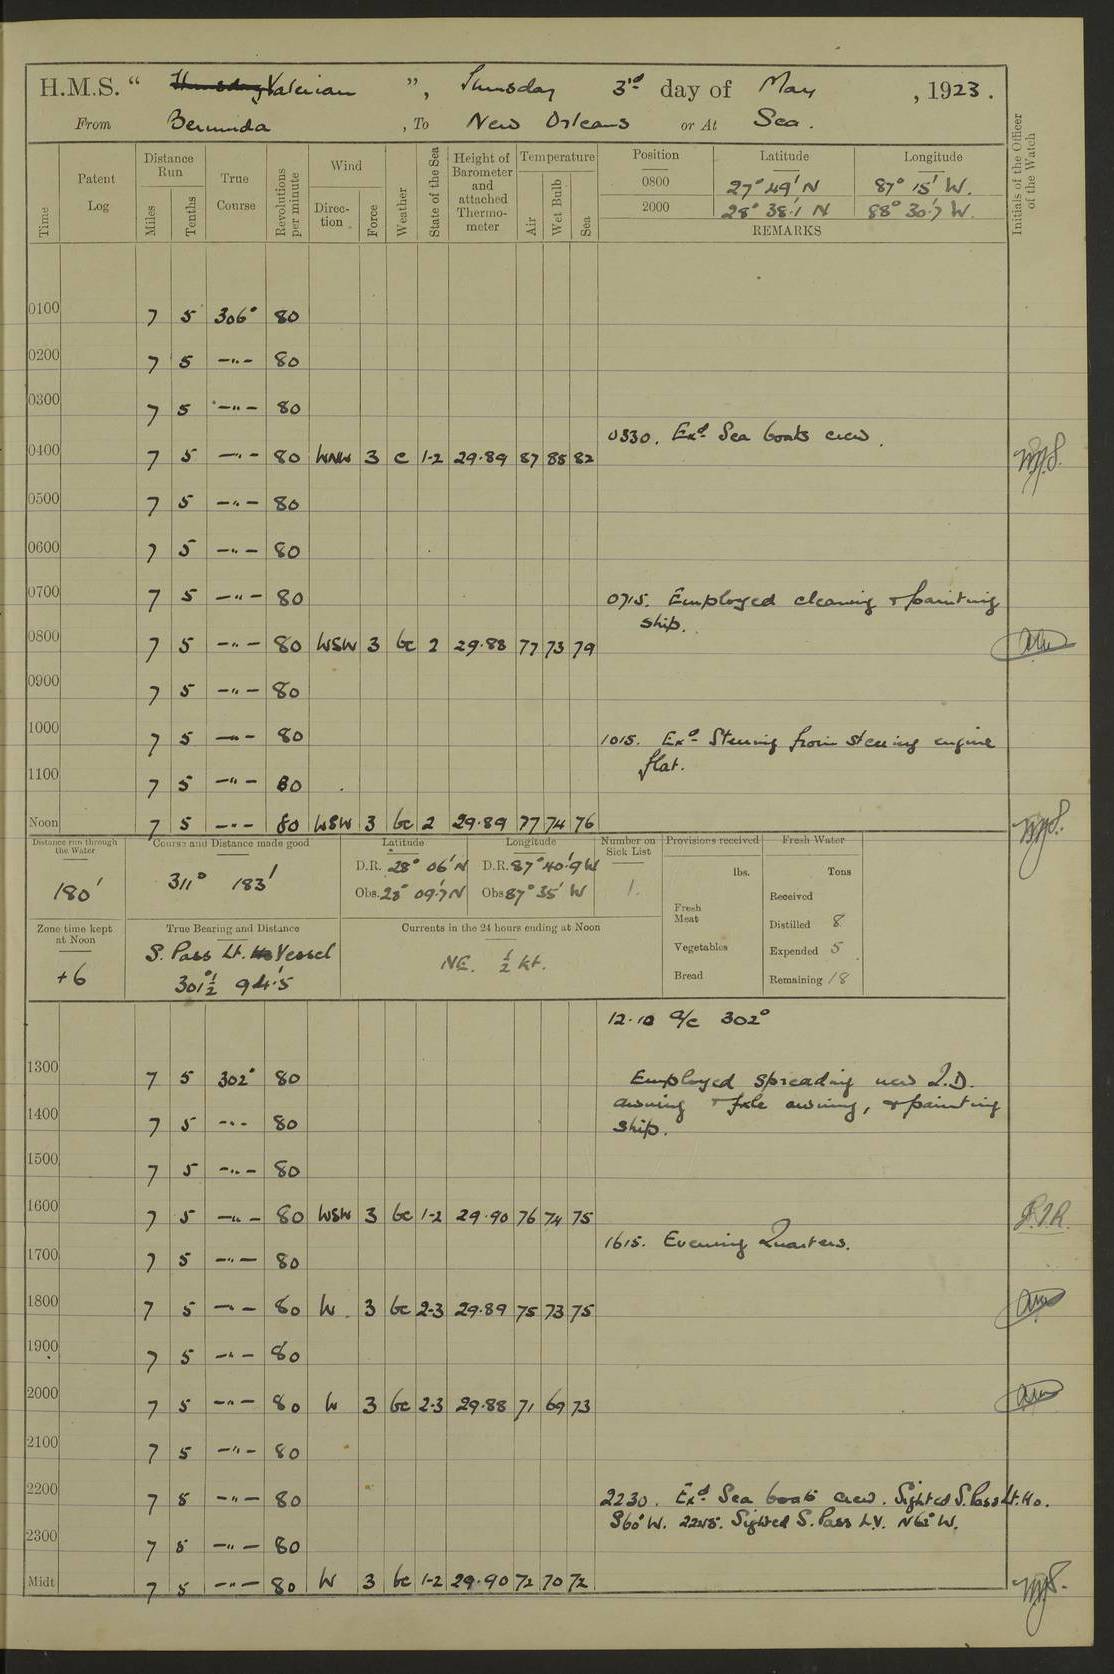 H.M.S. “ Valerian ”, Thursday 3rd day of May, 1923.
From Bermuda, To New Orleans or At Sea.
Time
Patent Log
Distance Run
Miles
Tenths
True Course
Revolutions per minute
Wind
Direction
Force
Weather
State of the Sea
Height of Barometer and attached Thermometer
Temperature
Air
Wet Bulb
Sea
Position Latitude Longitude
0800 27° 49' N 87° 15' W.
2000 28° 38·1 N 88° 30·7 W.
REMARKS
Initials of the Officer of the Watch
0100 7 5 306° 80
0200 7 5 -"- 80
0300 7 5 -"- 80
0330. Exd Sea boats crew.
0400 7 5 -"- 80 WNW 3 c 1-2 29·89 87 85 82
0500 7 5 -"- 80
0600 7 5 -"- 80
0700 7 5 -"- 80 0715. Employed cleaning & painting
ship.
0800 7 5 -"- 80 WSW 3 bc 2 29·88 77 73 79
0900 7 5 -"- 80
1000 7 5 -"- 80 1015. Exd Steering from steering engine
flat.
1100 7 5 -"- 80
Noon 7 5 -"- 80 WSW 3 bc 2 29·89 77 74 76
Distance run through the Water
180'
Course and Distance made good
311° 183'
Latitude
D.R. 28° 06' N
Obs. 28° 09·7 N
Longitude
D.R. 87° 40·9 W
Obs 87° 35' W
Number on Sick List
1.
Provisions received
lbs.
Fresh Meat
Vegetables
Bread
Fresh Water
Tons
Received
Distilled 8
Expended 5
Remaining 18
Zone time kept at Noon
+6
True Bearing and Distance
S. Pass Lt. Vessel
301½° 94·5'
Currents in the 24 hours ending at Noon
NE. ½ kt.
12.10 a/c 302°
1300 7 5 302° 80 Employed spreading new Q.D.
awning & fxle awning, & painting
ship.
1400 7 5 -"- 80
1500 7 5 -"- 80
1600 7 5 -"- 80 WSW 3 bc 1-2 29·90 76 74 75
1615. Evening Quarters.
1700 7 5 -"- 80
1800 7 5 -"- 80 W. 3 bc 2-3 29·89 75 73 75
1900 7 5 -"- 80
2000 7 5 -"- 80 W 3 bc 2-3 29·88 71 69 73
2100 7 5 -"- 80
2200 7 5 -"- 80 2230. Exd Sea boats crew. Sighted S. Pass Lt. Ho.
S60°W. 2245. Sighted S. Pass L.V. N62°W.
2300 7 5 -"- 80
Midt 7 5 -"- 80 W 3 bc 1-2 29·90 72 70 72